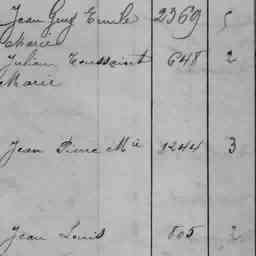 Jean Guy Emile 2369 5
Marie
Julien Toussaint 648 2
Marie
Jean Pierre Mie 1244 3
Jean Louis 805 2